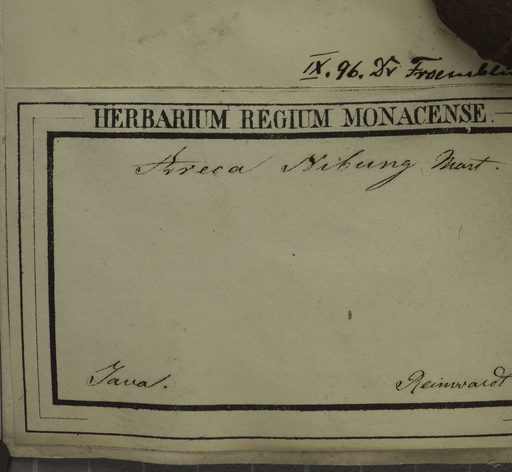 IX. 96. Dr Froembli
HERBARIUM REGIUM MONACENSE.
Areca Nibung Mart.
Java.
Reinwardt